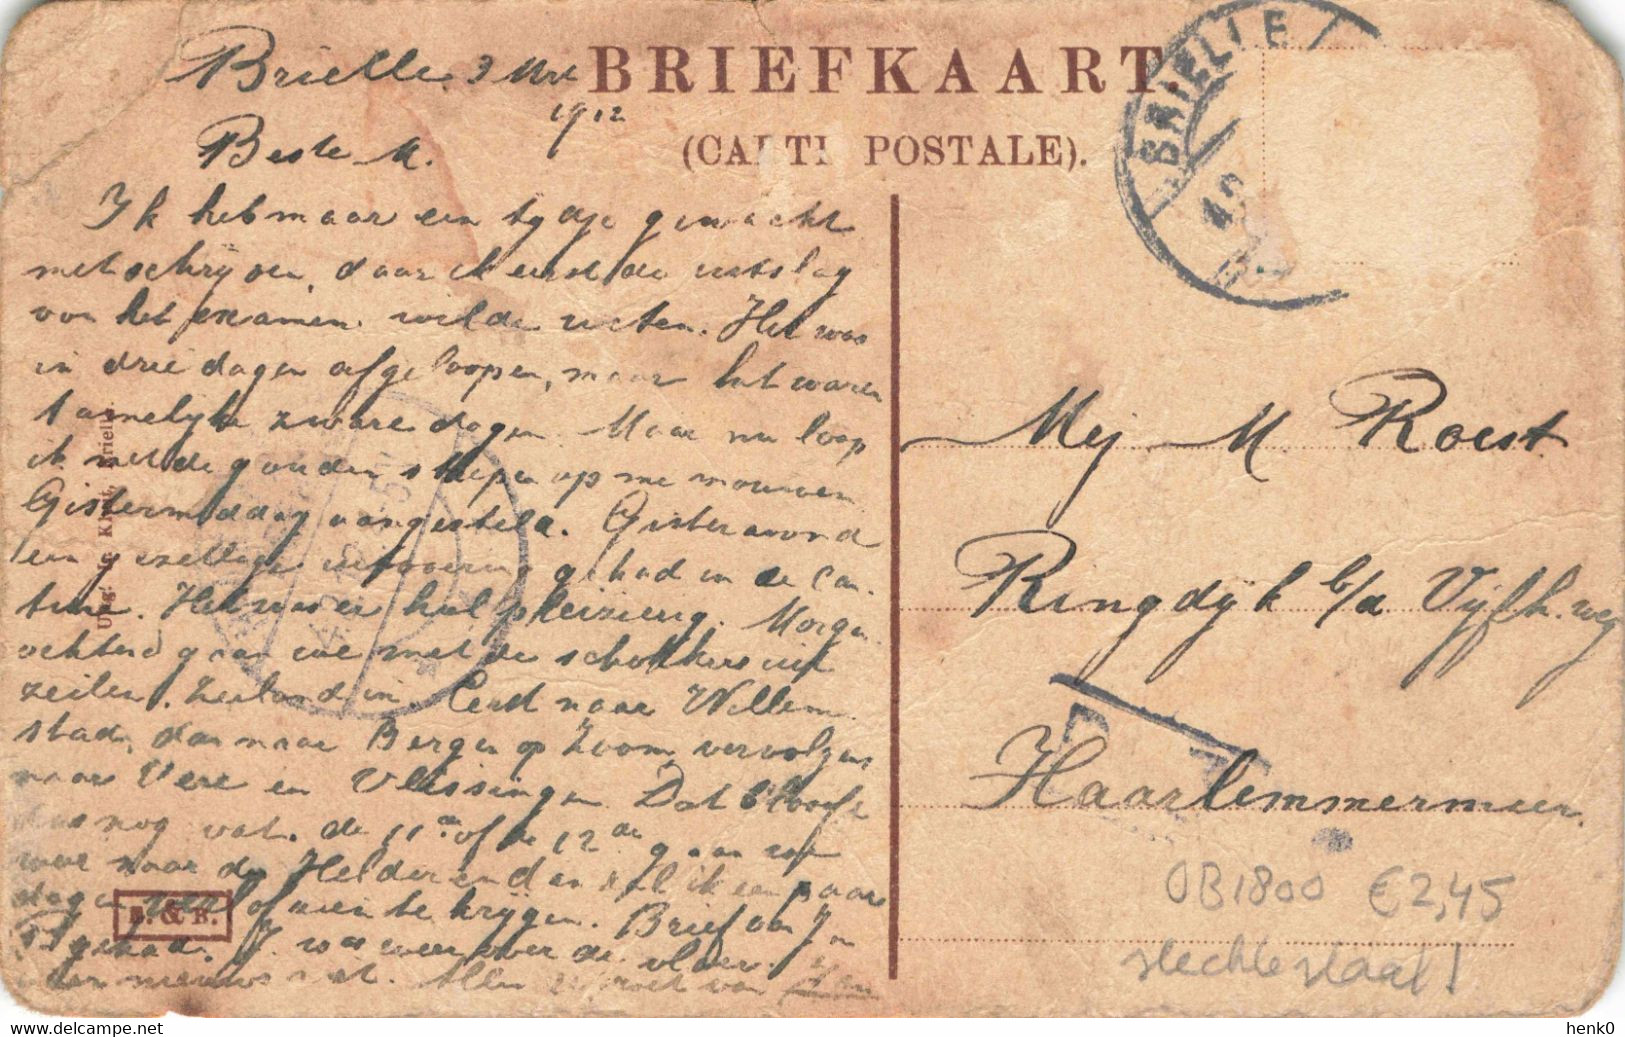 BRIEFKAART.
(CARTE POSTALE).
BRIELLE
Brielle 3 Mrt
1912
Beste M.
Ik heb maar een tydje gewacht
met schrijven, daar ik eerst de uitslag
van het examen wilde weten. Het was
in drie dagen afgeloopen, maar het waren
tamelijke zware dagen. Maar nu loop
ik met de gouden strepen op me mouwen
Gistermiddag aangesteld. Gisteravond
een gezellige uitvoering gehad in de can-
tine. Het was er heel pleizierig. Morgen
ochtend gaan we met de schokkers uit
zeilen. Zeeland in. Eerst naar Willem
stad, dan naar Bergen op Zoom, vervolgens
naar Vere en Vlissingen. Dat belooft
dus nog wat. de 11de of de 12de gaan we
weer naar den Helder en dan zal ik een paar
dagen verlof zien te krijgen. Brief van J
gehad. J. was weer over de vloer.
nieuws niet. Allen van
Uitg. Brielle
B. & B.
Mej M. Roest
Ringdyk b/a Vijfh. weg
Haarlemmermeer.
T
OB1800 €2,45
slechte staat!
henk0